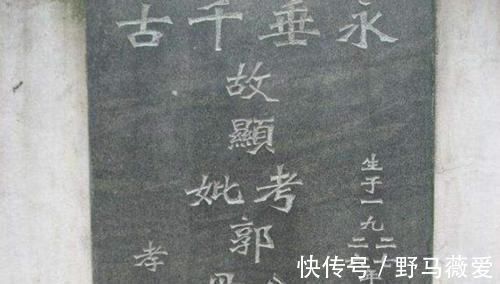 永垂千古
生于一九
故顯
考妣
郭
孝
快传号 / 野马薇爱